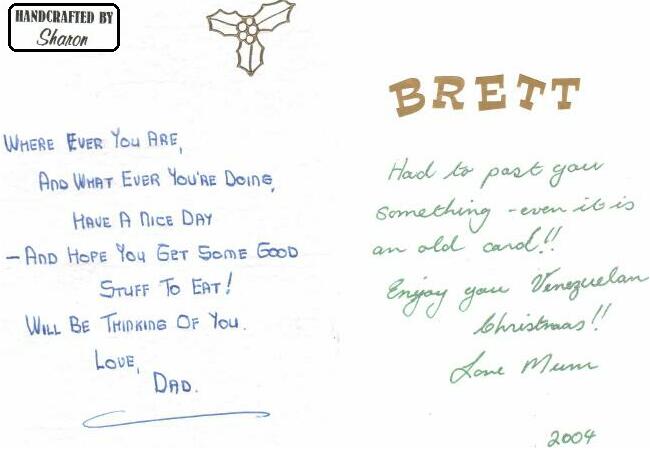 HANDCRAFTED BY
Sharon
WHERE EVER YOU ARE,
AND WHAT EVER YOU'RE DOING,
HAVE A NICE DAY
—AND HOPE YOU GET SOME GOOD
STUFF TO EAT!
WILL BE THINKING OF YOU.
LOVE,
DAD.
BRETT
Had to post you
something - even it is
an old card!!
Enjoy you Venezuelan
Christmas!!
Love Mum
2004